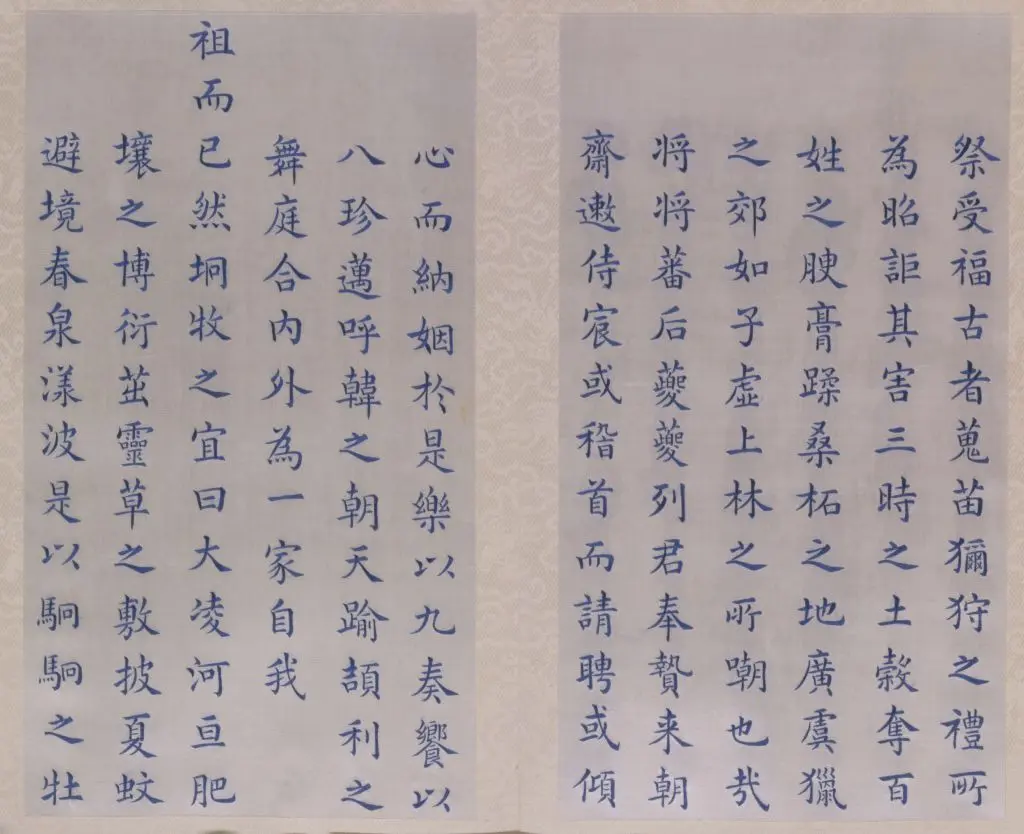 祭受福古者蒐苗獮狩之禮所
為昭詎其害三時之土穀奪百
姓之腴膏蹂桑柘之地廣虞獵
之郊如子虛上林之所嘲也哉
将将蕃后夔夔列君奉贄来朝
齋遫侍宸或稽首而請聘或傾
心而納姻於是樂以九奏饗以
八珍邁呼韓之朝天踰頡利之
舞庭合内外為一家自我
祖而已然坰牧之宜曰大凌河亘肥
壤之博衍茁靈草之敷披夏蚊
避境春泉漾波是以駉駉之牡